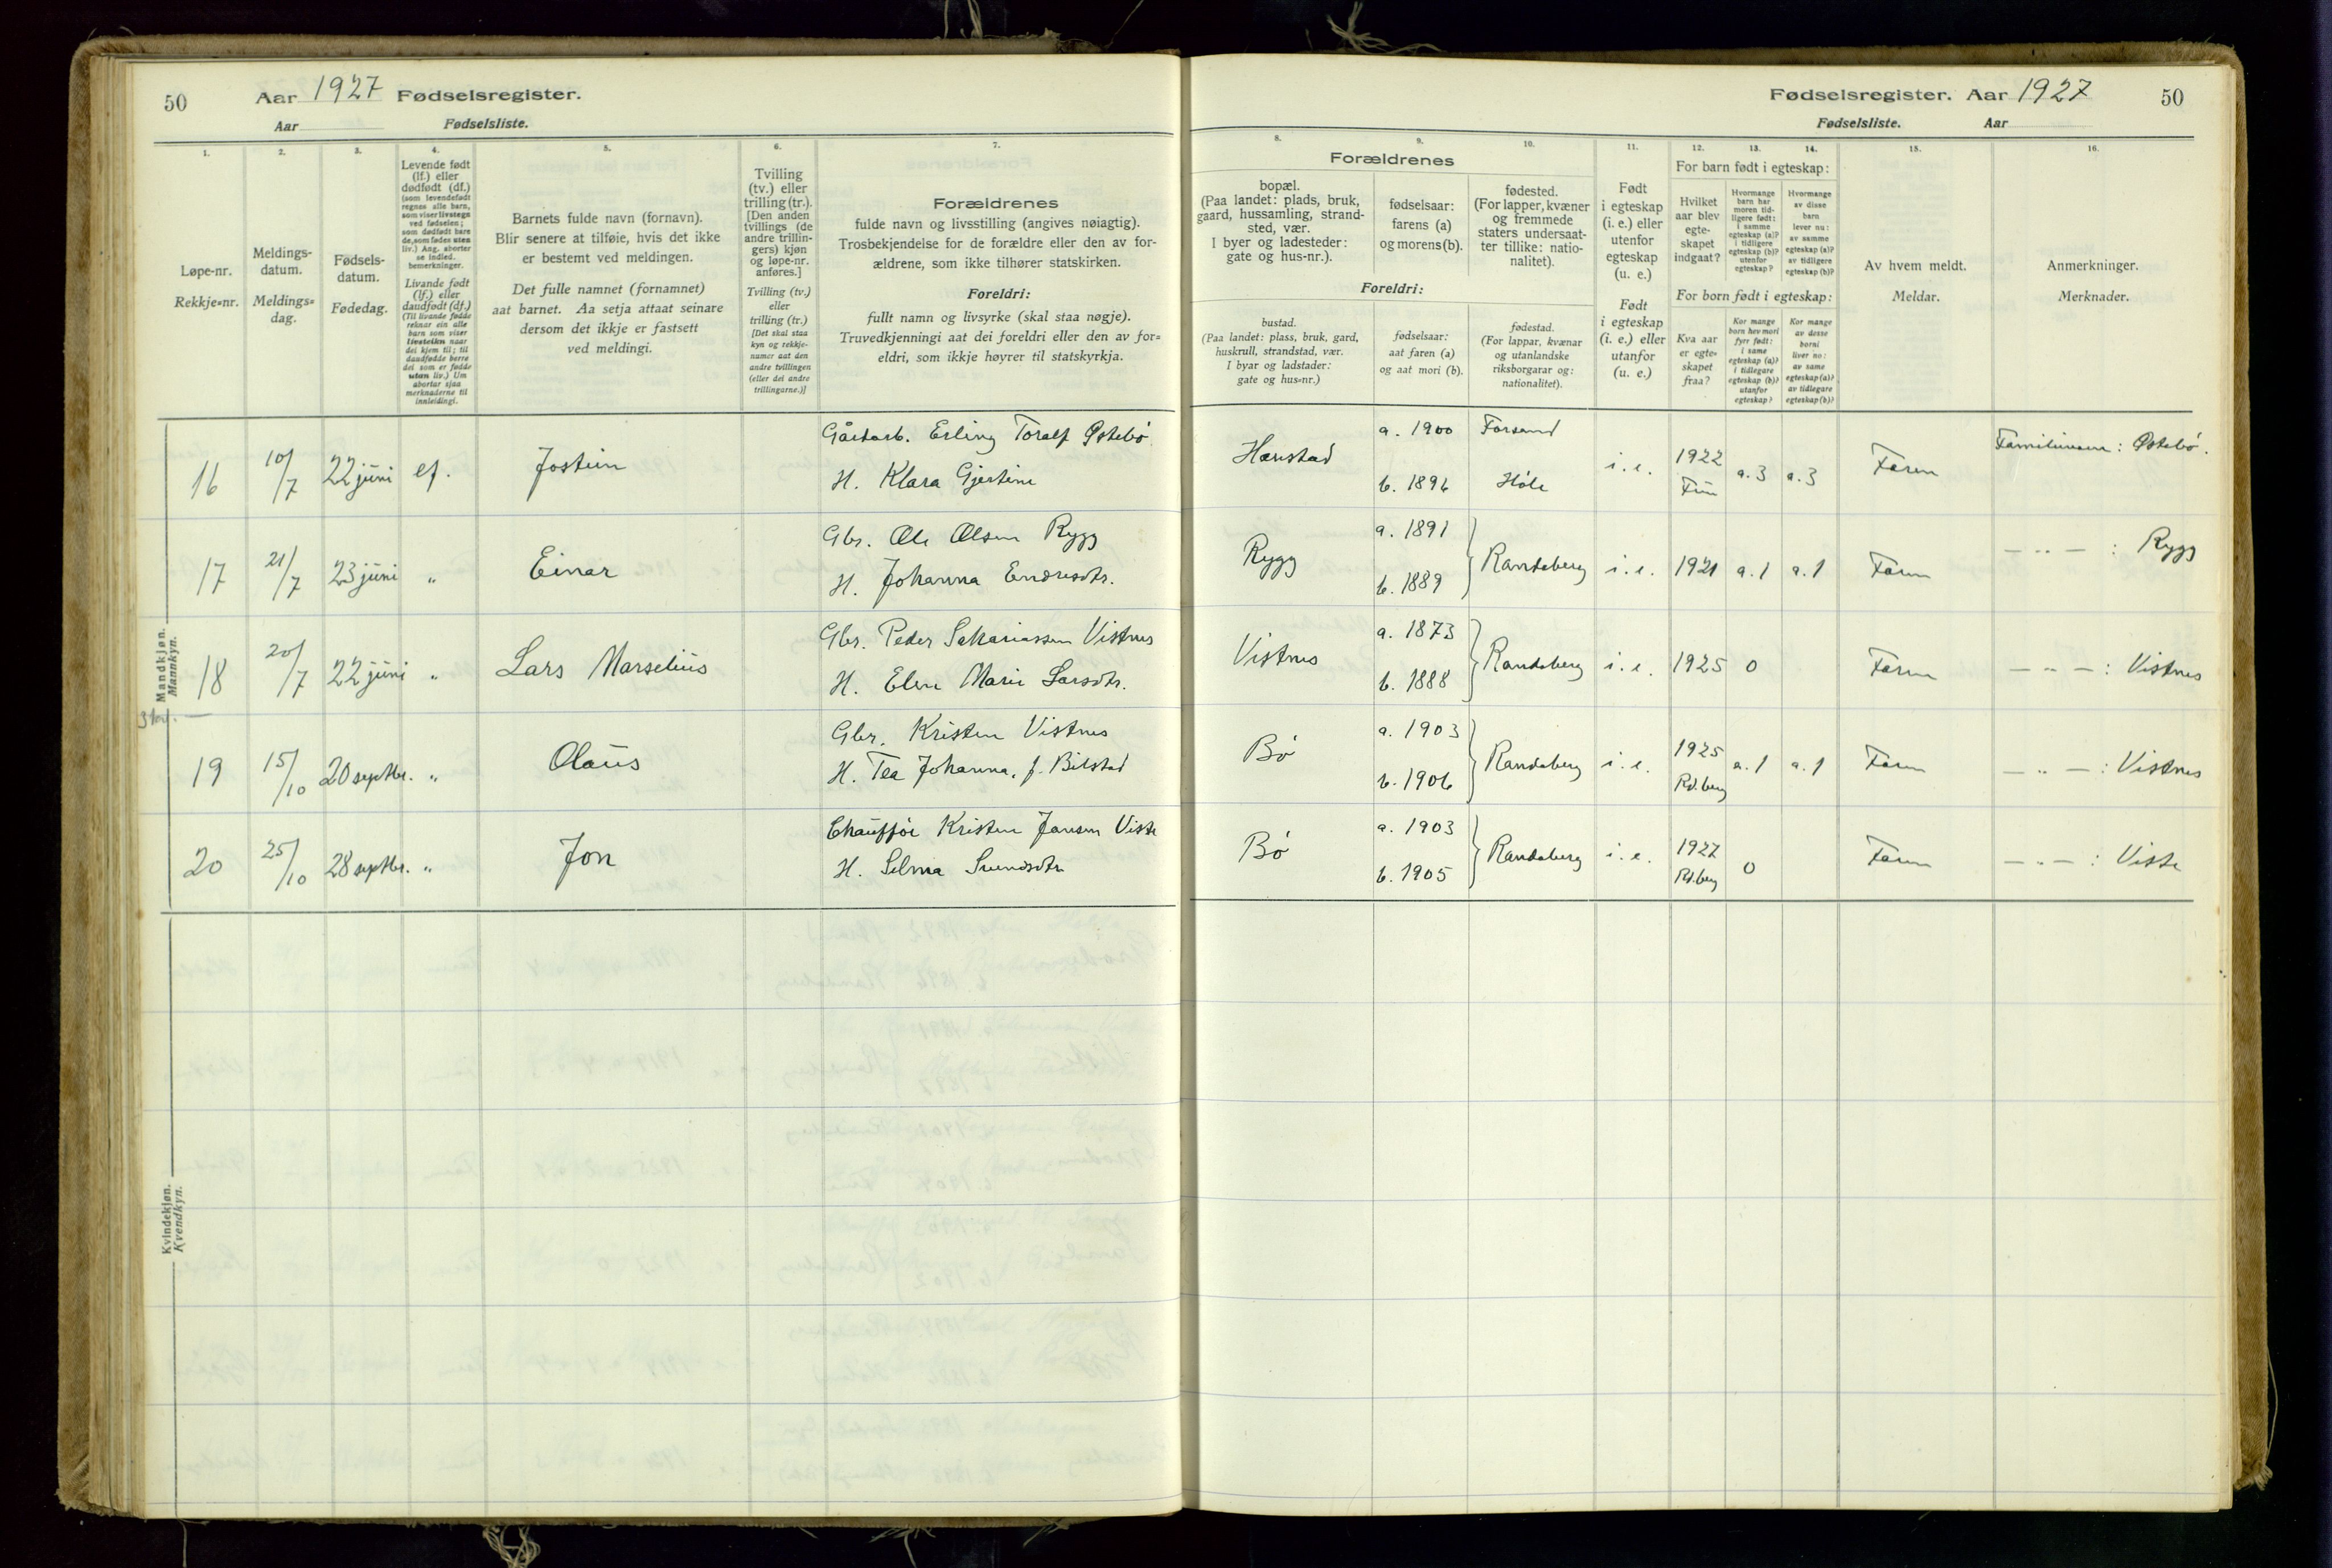 50 Aar 1927 Fødselsregister.
Aar Fødselsliste.
1.
Løpe-nr.
Rekkje-nr.
2.
Meldings-
datum.
Meldings-
dag.
3.
Fødsels-
datum.
Fødedag.
4.
Levende født
(lf.) eller
dødfødt (df.)
(som levendefødt
regnes alle barn,
som viser livstegn
ved fødselen;
som dødfødt bare
de, som fødes uten
liv.) Ang. aborter
se indled.
bemerkninger.
Livande født
(lf.) eller
daudfødt (df.)
(Til livande fødde
reknar ein alle
barn som viser
livsteikn naar
dei kjem til; til
daudfødde berre
dei som er fødde
utan liv.) Um
abortar sjaa
merknaderne til
innleidingi.
5.
Barnets fulde navn (fornavn).
Blir senere at tilføie, hvis det ikke
er bestemt ved meldingen.
Det fulle namnet (fornamnet)
aat barnet. Aa setja attaat seinare
dersom det ikkje er fastsett
ved meldingi.
6.
Tvilling
(tv.) eller
trilling (tr.).
[Den anden
tvillings (de
andre trillin-
gers) kjøn
og løpe-nr.
anføres.]
Tvilling (tv.)
eller
trilling (tr.)
[Det skal staa
kyn og rekkje-
numer aat den
andre tvillingen
(eller dei andre
trillingarne.)]
7.
Forældrenes
fulde navn og livsstilling (angives nøiagtig).
Trosbekjendelse for de forældre eller den av for-
ældrene, som ikke tilhører statskirken.
Foreldri:
fullt namn og livsyrke (skal staa nøgje).
Truvedkjenningi aat dei foreldri eller den av for-
eldri, som ikkje høyrer til statskyrkja.
Mandkjøn.
Mannkyn.
16 10/7 22 juni lf. Jostein Gårdarb. Erling Toralf Østebö
H. Klara Gjertine
17 21/7 23 juni " Einar Gbr. Ole Olsen Rygg
H. Johanna Endresdtr.
18 20/7 22 juni " Lars Marselius Gbr. Peder Sakariassen Vistnes
H. Elen Marie Larsdtr.
19 15/10 20 septbr. " Olaus Gbr. Kristen Vistnes
H. Tea Johanna, f. Bilstad
20 25/10 28 septbr. " Jon Chauffør Kristen Jansen Viste
H. Selma Svendsdtr
Kvindekjøn.
Kvendkyn.
Fødselsregister. Aar 1927 50
Fødselsliste. Aar
Forældrenes
8.
bopæl.
(Paa landet: plads, bruk,
gaard, hussamling, strand-
sted, vær.
I byer og ladesteder:
gate og hus-nr.).
9.
fødselsaar:
farens (a)
og morens (b).
10.
fødested.
(For lapper, kvæner
og fremmede
staters undersaat-
ter tillike: natio-
nalitet).
Foreldri:
bustad.
(Paa landet: plass, bruk, gard,
huskrull, strandstad, vær.
I byar og ladstader:
gate og hus-nr.)
fødselsaar:
aat faren (a)
og aat mori (b).
fødestad.
(For lappar, kvænar
og utanlandske
riksborgarar og:
nationalitet).
11.
Født
i egteskap
(i. e.) eller
utenfor
egteskap
(u. e.)
Født
i egteskap
(i. e.) eller
utanfor
(u. e.)
12. 13. 14.
For barn født i egteskap:
Hvilket
aar blev
egte-
skapet
indgaat?
Hvormange
barn har
moren tid-
ligere født:
i samme
egteskap (a)?
i tidligere
egteskap (b)?
utenfor
egteskap?
Hvormange
av disse
barn
lever nu:
av samme
egteskap (a)?
av tidligere
egteskap (b)?
For born født i egteskap:
Kva aar
er egte-
skapet
fraa?
Kor mange
born hev mori
fyrr født:
i same
egteskap (a)?
i tidlegare
egteskap (b)?
utanfor
egteskap?
Kor mange
av desse
borni
liver no:
av same
egteskap (a)?
av tidlegare
egteskap (b)?
15.
Av hvem meldt.
Meldar.
16.
Anmerkninger.
Merknader.
Harestad a. 1900 Forsand
b. 1896 Høle i. e. 1922 a. 3 a. 3 Faren Familienavn: Østebö.
Rygg a. 1891
b. 1889 Randaberg i. e. 1921 a. 1 a. 1 Faren — " — : Rygg
Vistnes a. 1873
b. 1888 Randaberg i. e. 1925 0 Faren — " — : Vistnes
Bö a. 1903
b. 1906 Randaberg i. e. 1925 Rd.berg a. 1 a. 1 Faren — " — : Vistnes
Bö a. 1903
b. 1905 Randaberg i. e. 1927 Rd.berg 0 Faren — " — : Viste